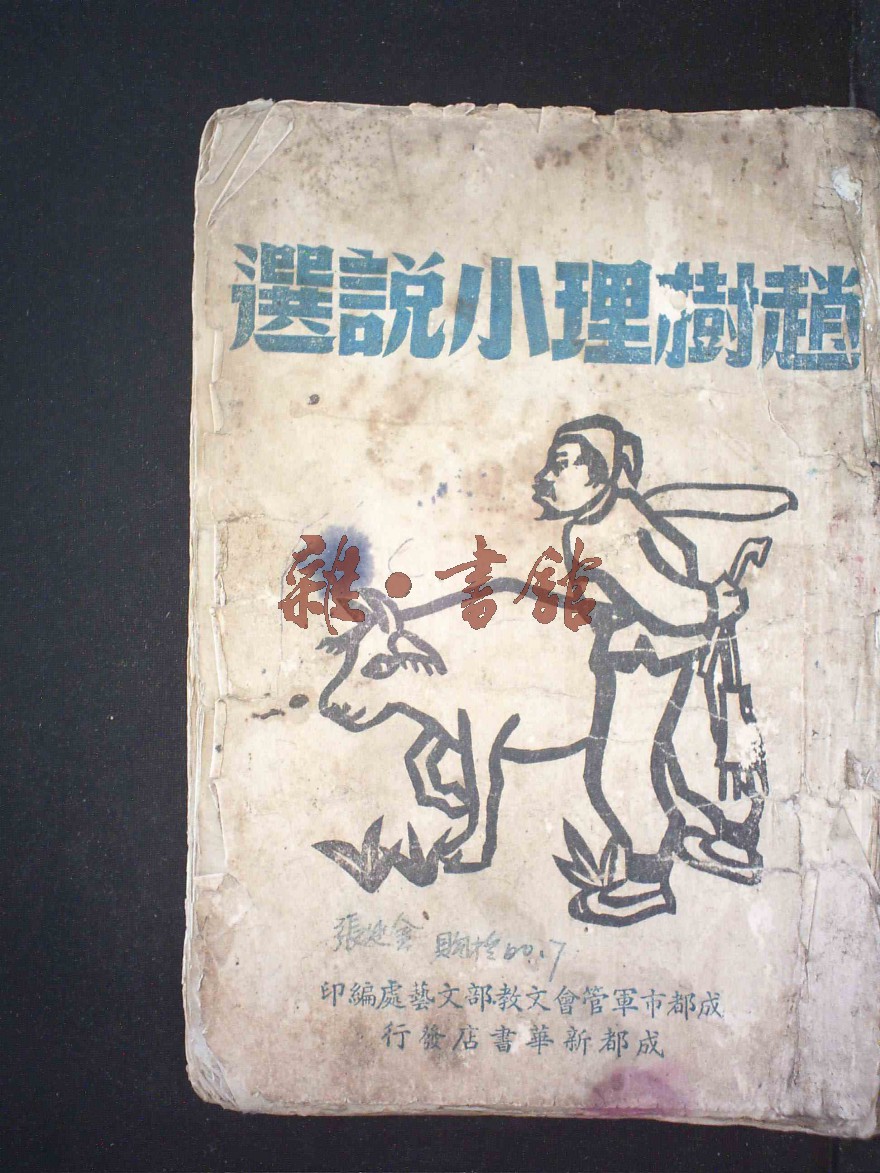 趙樹理小說選
雜·書館
張延金 購於60.7
成都市軍管會文教部文藝處編印
成都新華書店發行